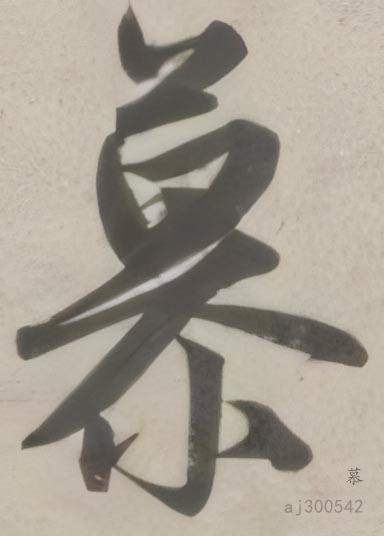 慕
慕
aj300542